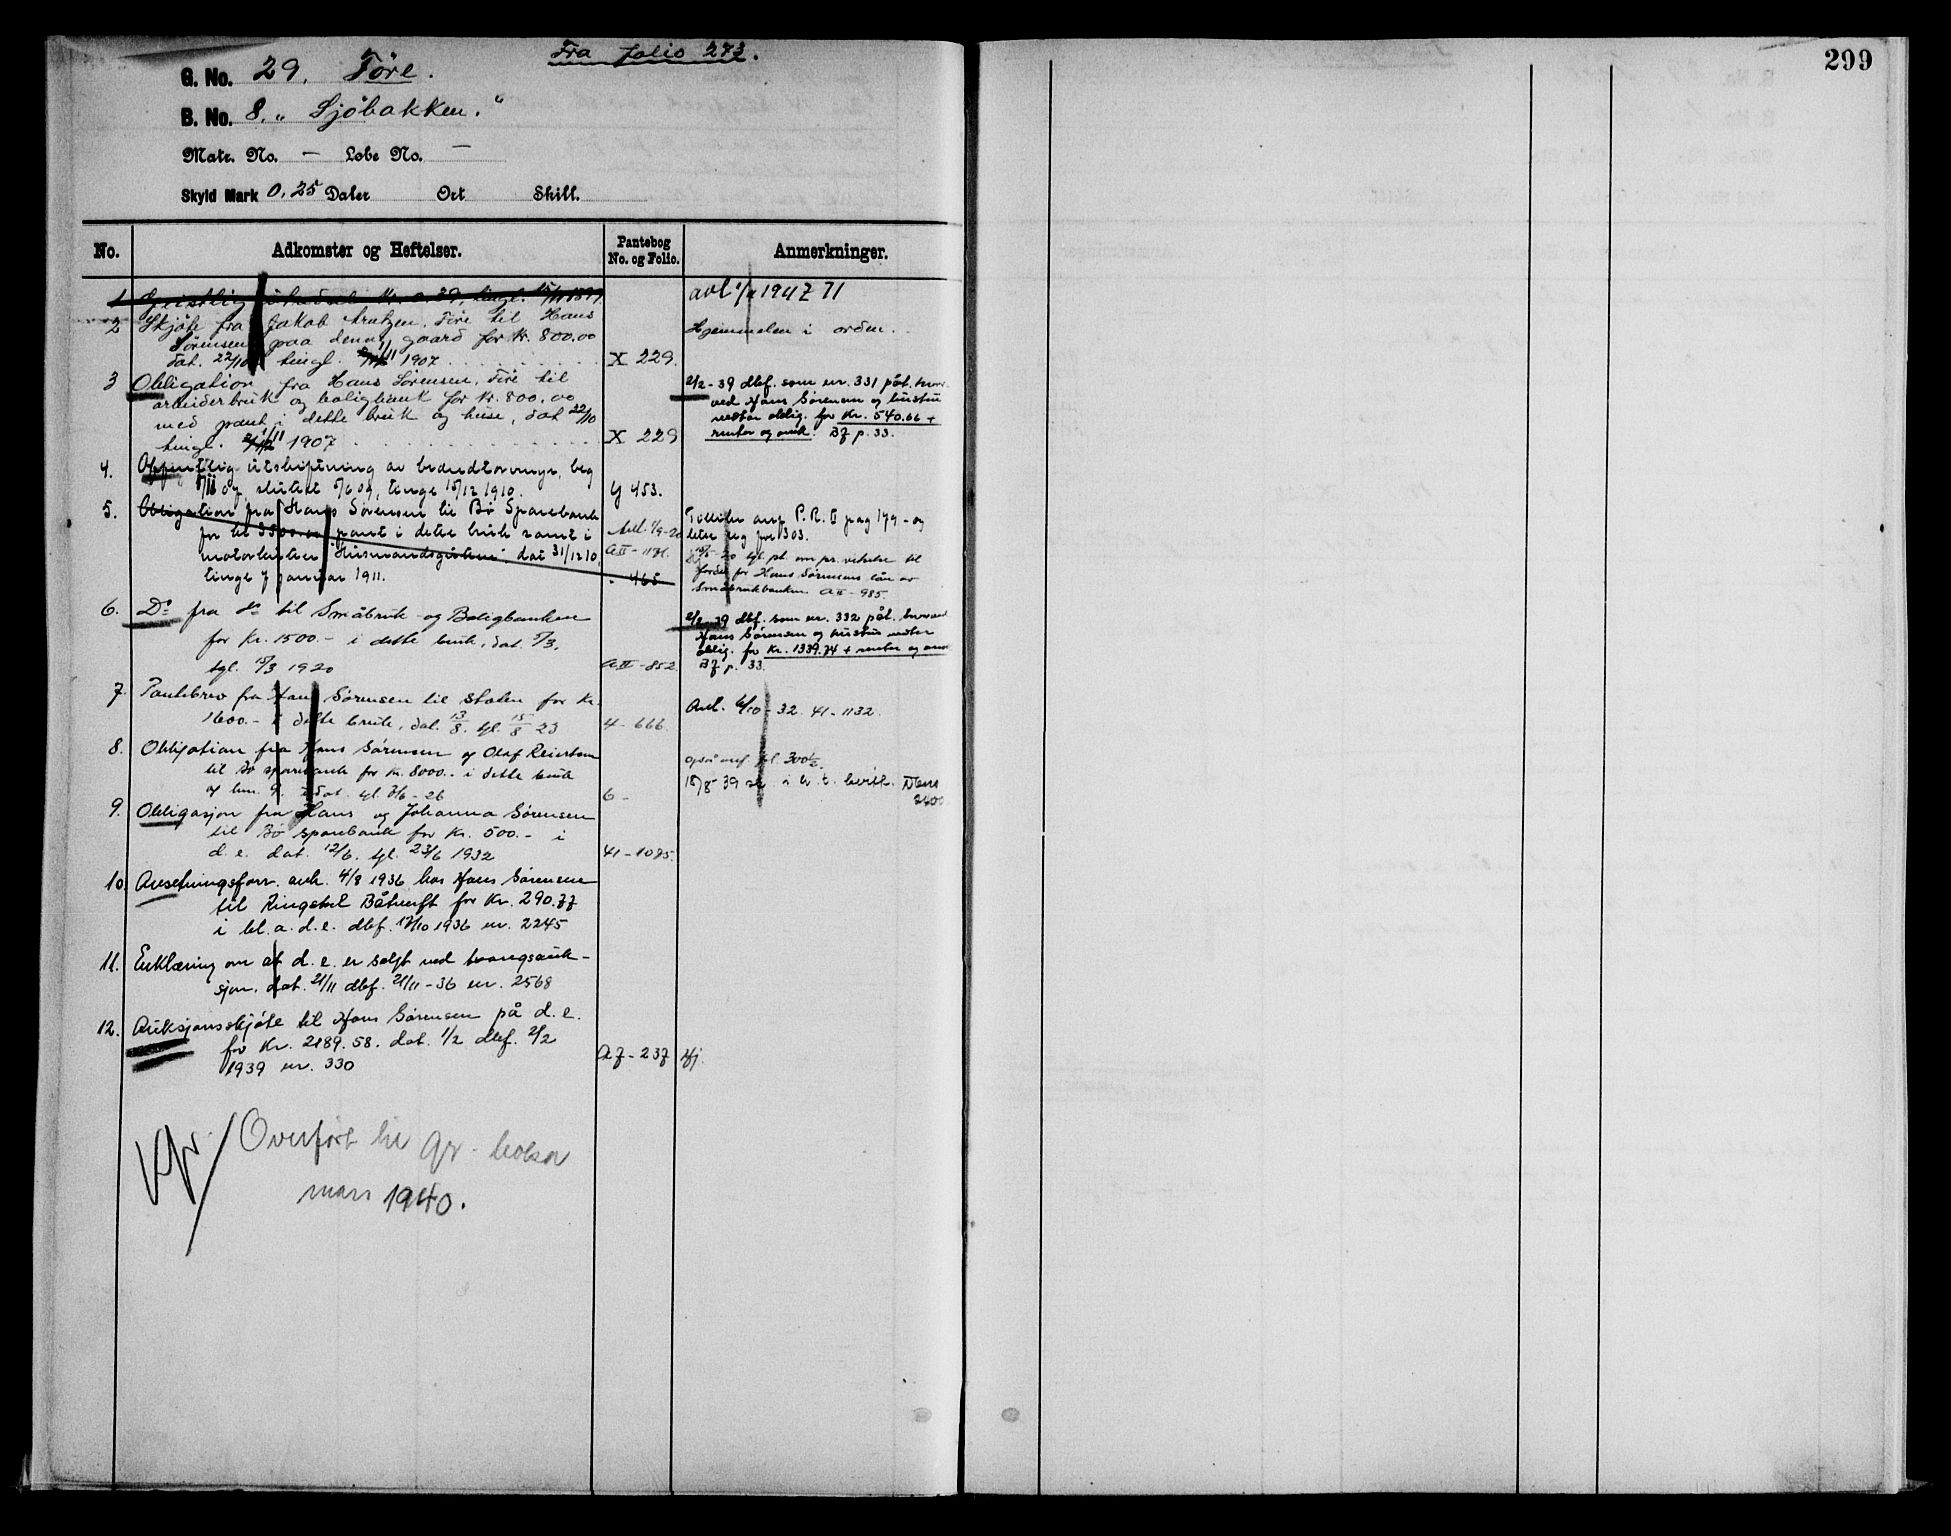 Fra folio 273.
299
G. No. 29. Före.
B. No. 8. „Sjöbakken."
Matr. No. — Løbe No. —
Skyld Mark 0,25 Daler Ort Skill.
No. Adkomster og Heftelser. Pantebog No. og Folio. Anmerkninger.
1 Geistlig
2 Skjöte fra Jakob Före til Hans
Sørensen paa denne gaard for Kr. 800.00
dat. 22/10 tingl. 1/11 1907 X 229.
Hjemmelen i orden.
3 Obligation fra Hans Sørensen Före til
arbeiderbruk og boligbank for Kr. 800.00
med pant i dette bruk og huse, dat 22/10
tingl. 1/11 1907 X 229
2/2-39 dbf. som nr. 331 påt. hvor-
ved Hans Sørensen og hustru
vedtar oblig. for Kr. 540.66 +
renter og omk. Bf p. 33.
4. Offentlig utskiftning av brandtorvmyr, beg
og sluttet 5/6 09, tingl 15/12 1910. Y 453.
5. Obligation fra Hans Sørensen til Bø Sparebank
for til 3500.00 pant i dette bruk samt i
dat 31/12 10,
tingl 7 januar 1911. " 465
Avl. 1/9-20
P. R. I pag 179 - og
letter sig for 303.
tgl. pt. om pr. vikelse til
fordel for Hans Sørensens lån av
Småbrukbanken AII-985.
6. Do fra do til Småbruk- og Boligbanken
for Kr. 1500.- i dette bruk, dat. 5/3,
tgl. 15/3 1920 AII-852
2/2-39 dbf. som nr. 332 påt. hvorved
Hans Sørensen og hustru vedtar
oblig. for Kr. 1339.74 + renter og omk
Bf p. 33.
7. Pantebrev fra Hans Sørensen til staten for Kr.
1600.- i dette bruk, dat. 13/8, tgl. 15/8 23 4-666.
Avl. 6/10-32. 41-1132.
8. Obligation fra Hans Sørensen og Olaf Reiertsen
til Bø sparebank for Kr. 8000.- i dette bruk
6-
9. Obligasjon fra Hans og Johanna Sørensen
til Bø sparebank for Kr. 500.- i
d. e. dat. 12/6. tgl. 23/6 1932 41-1085.
10. Avsetningsforr. avh. 4/8 1936 hos Hans Sørensen
til Ringstad Båtverft for Kr. 290.77
i bl. a. d. e. dbf. 17/10 1936 nr. 2245
11. Erklæring om at d. e. er solgt ved tvangsauk-
sjon. dat. 21/11 dbf. 21/11-36 nr. 2568
12. Auksjonsskjöte til Hans Sørensen på d. e.
for Kr. 2189.58. dat. 1/2 dbf. 2/2
1939 nr. 330 A7-237 Hj.
Overfört til gr. boken
mars 1940.